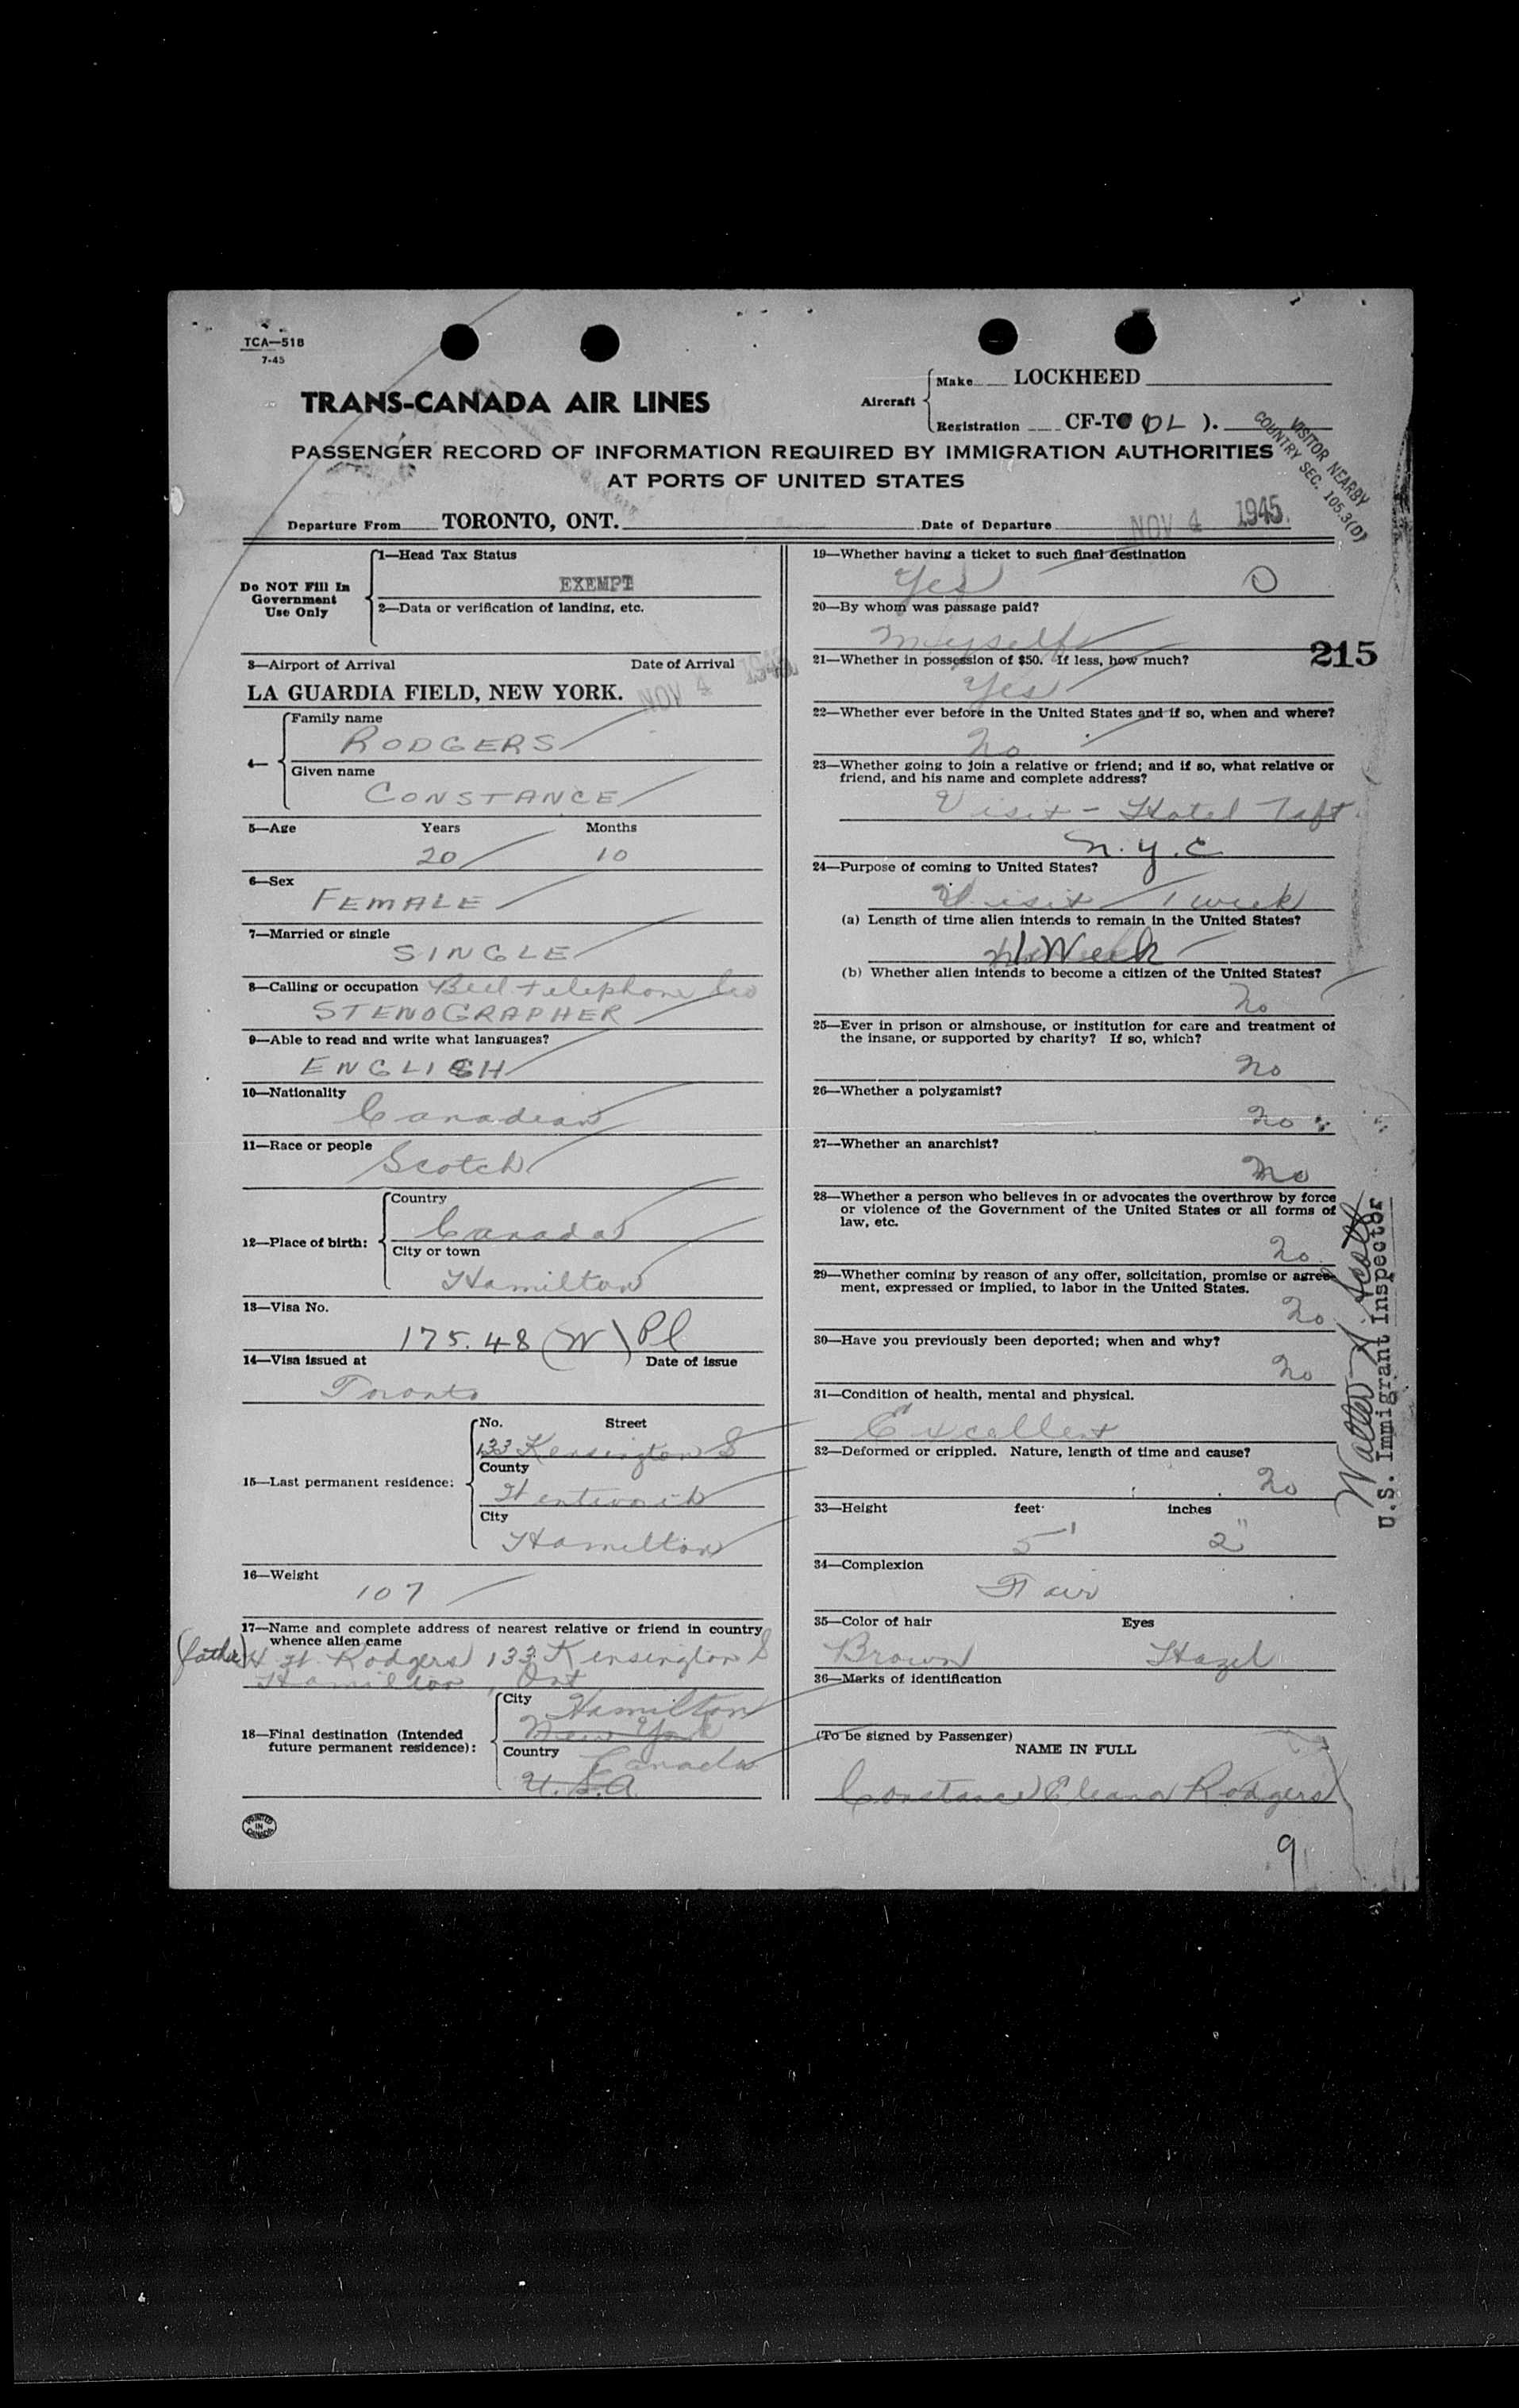 TCA—518
7-45
TRANS-CANADA AIR LINES
Aircraft
Make LOCKHEED
Registration CF-T (DL ).
VISITOR NEARBY
COUNTRY SEC. 105.3(D)
PASSENGER RECORD OF INFORMATION REQUIRED BY IMMIGRATION AUTHORITIES
AT PORTS OF UNITED STATES
Departure From TORONTO, ONT. Date of Departure NOV 4 1945
Do NOT Fill In
Government
Use Only
1—Head Tax Status
EXEMPT
2—Data or verification of landing, etc.
3—Airport of Arrival Date of Arrival
LA GUARDIA FIELD, NEW YORK. NOV 4 1945
4—
Family name
RODGERS
Given name
CONSTANCE
5—Age Years Months
20 10
6—Sex
FEMALE
7—Married or single
SINGLE
8—Calling or occupation Bell telephone Co
STENOGRAPHER
9—Able to read and write what languages?
ENGLISH
10—Nationality
Canadian
11—Race or people
Scotch
12—Place of birth:
Country
Canada
City or town
Hamilton
13—Visa No.
175.48 (W) Pl
14—Visa issued at Date of issue
Toronto
15—Last permanent residence:
No. Street
133 Kensington S
County
Wentworth
City
Hamilton
16—Weight
107
17—Name and complete address of nearest relative or friend in country
whence alien came
(father) Rodgers 133 Kensington S
Hamilton, Ont
18—Final destination (Intended
future permanent residence):
City Hamilton
New York
Country Canada
U.S.A.
PRINTED
IN
CANADA
19—Whether having a ticket to such final destination
Yes O
20—By whom was passage paid?
Myself
215
21—Whether in possession of $50. If less, how much?
Yes
22—Whether ever before in the United States and if so, when and where?
No
23—Whether going to join a relative or friend; and if so, what relative or
friend, and his name and complete address?
Visit - Hotel Taft
N.Y.C
24—Purpose of coming to United States?
Visit 1 week
(a) Length of time alien intends to remain in the United States?
1 Week
(b) Whether alien intends to become a citizen of the United States?
No
25—Ever in prison or almshouse, or institution for care and treatment of
the insane, or supported by charity? If so, which?
No
26—Whether a polygamist?
No
27—Whether an anarchist?
No
28—Whether a person who believes in or advocates the overthrow by force
or violence of the Government of the United States or all forms of
law, etc.
No
29—Whether coming by reason of any offer, solicitation, promise or agree-
ment, expressed or implied, to labor in the United States.
No
30—Have you previously been deported; when and why?
No
31—Condition of health, mental and physical.
Excellent
32—Deformed or crippled. Nature, length of time and cause?
No
33—Height feet inches
5' 2"
34—Complexion
Fair
35—Color of hair Eyes
Brown Hazel
36—Marks of identification
(To be signed by Passenger)
NAME IN FULL
Constance Eleanor Rodgers
9
Walter
U.S. Immigrant Inspector